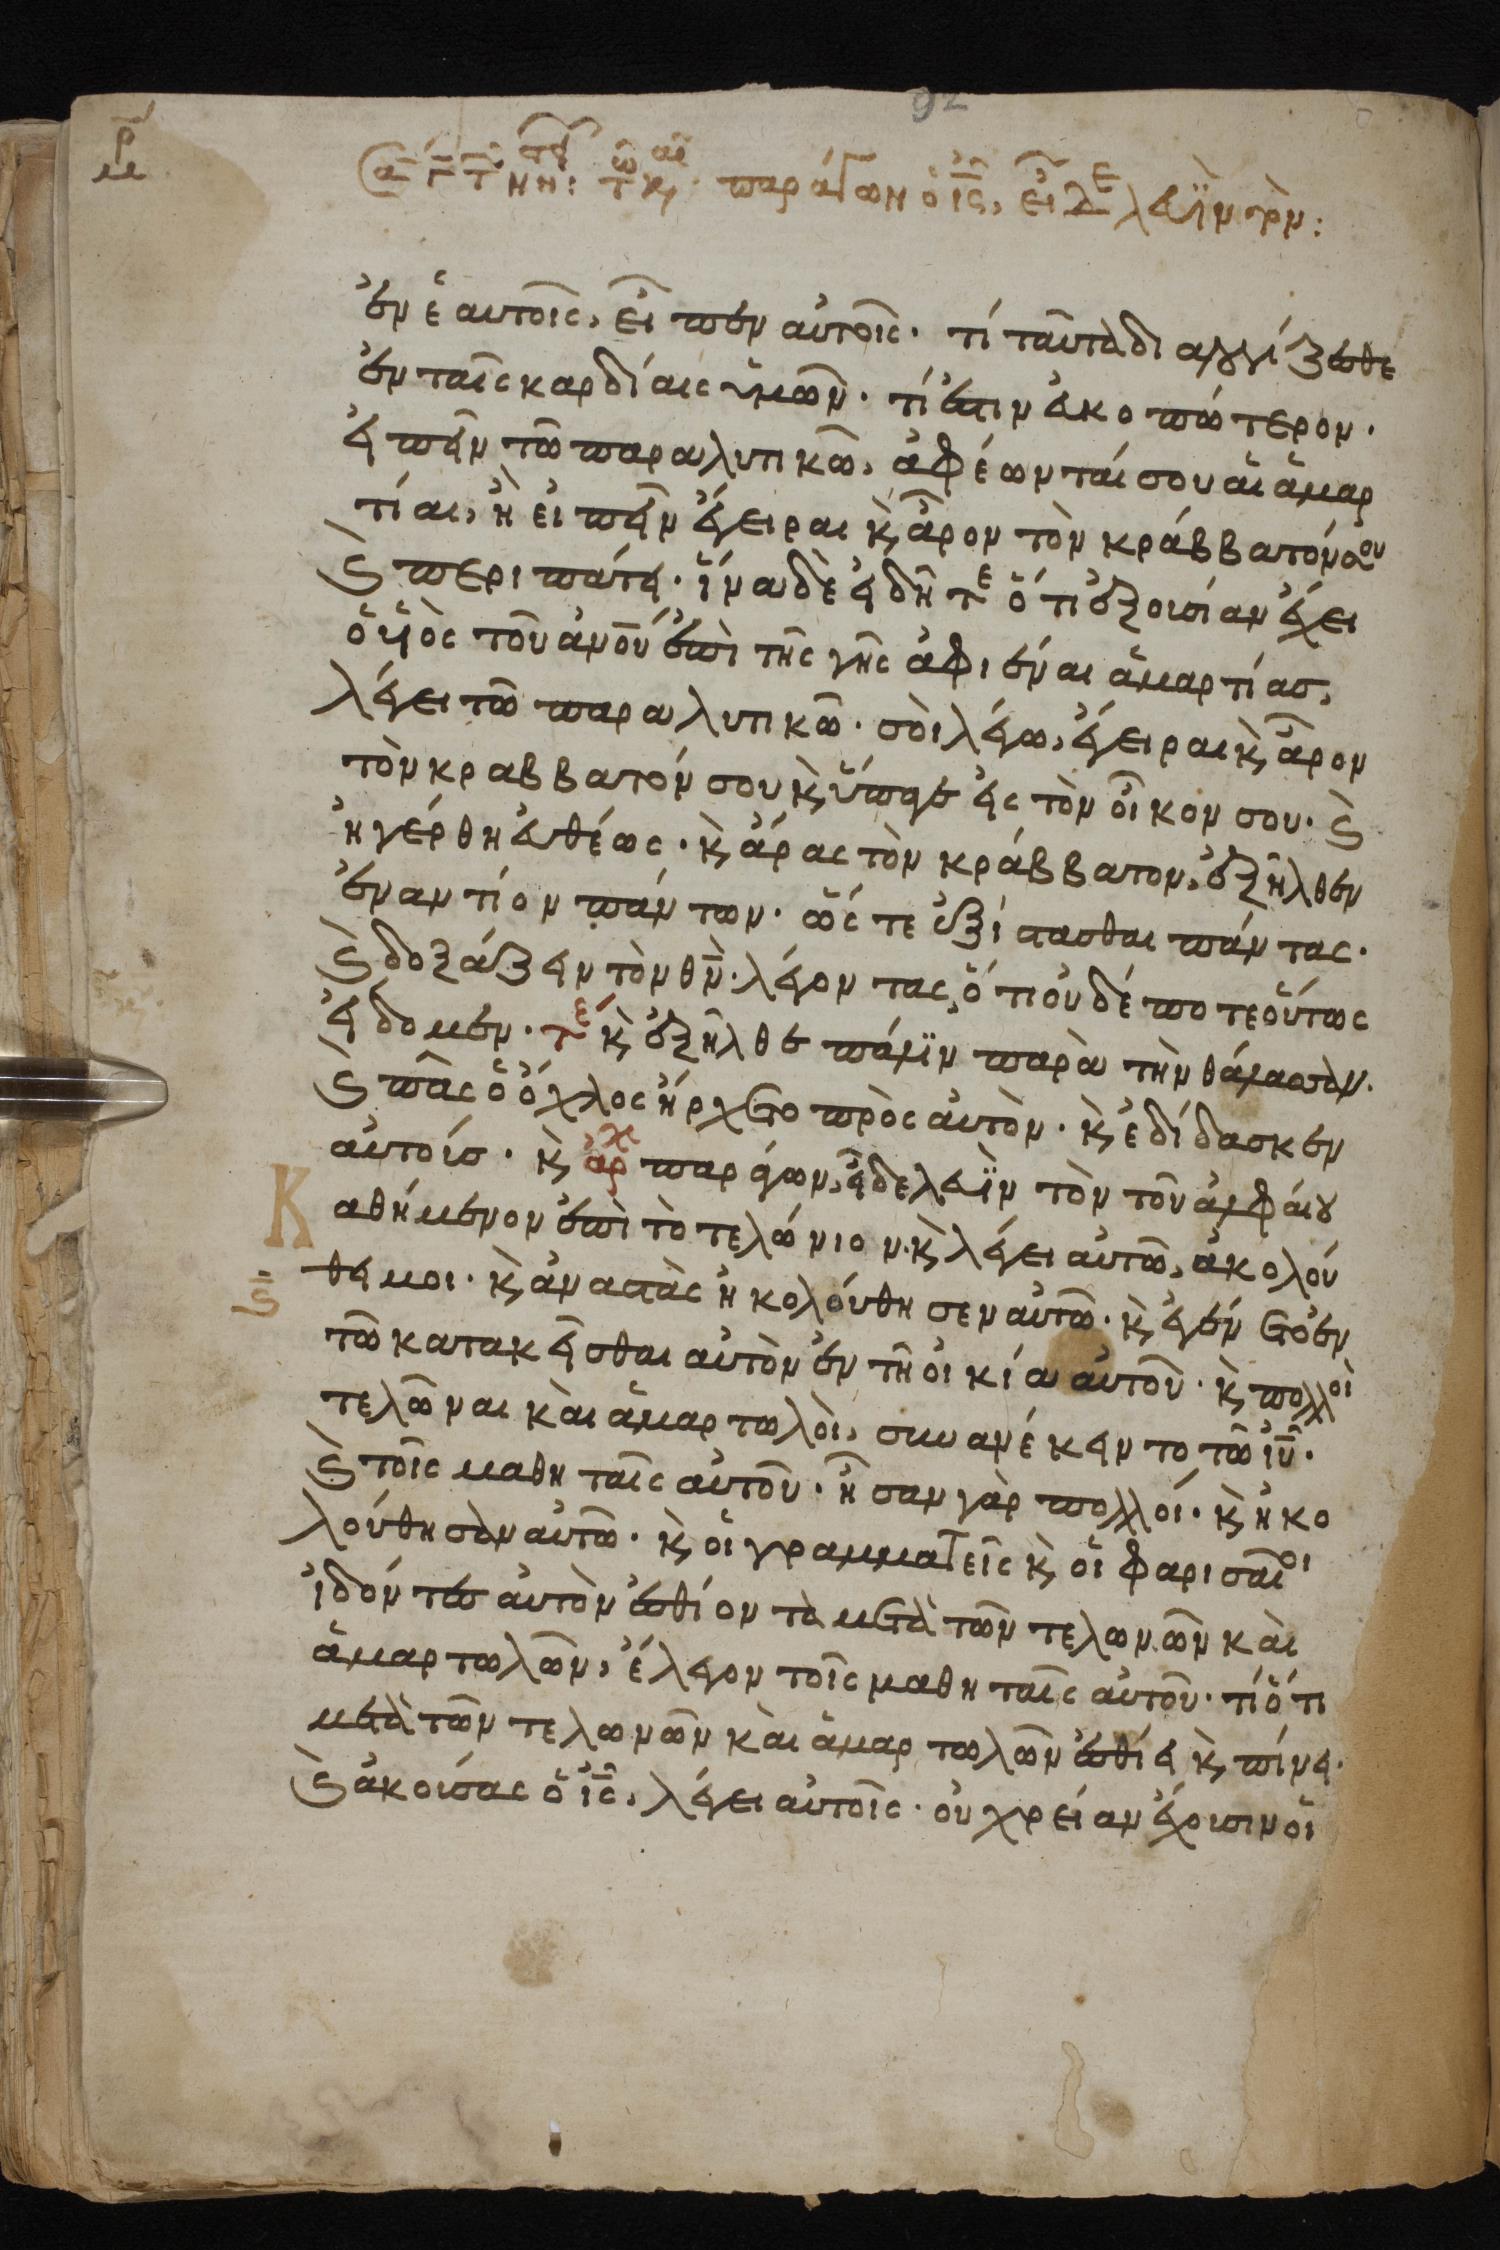 92
παράγων ὁ ις, εἶδε λευϊν τὸν:
ἐν ἑαυτοῖς, εἶπεν αὐτοῖς. τί ταῦτα διαλογίζεσθε
ἐν ταῖς καρδίαις ὑμῶν. τί ἐστιν εὐκοπώτερον.
εἰπεῖν τῶ παραλυτικῶ, ἀφέωνταί σου αἱ ἁμαρ
τίαι, ἢ εἰπεῖν ἔγειραι κ ἆρον τὸν κράββατόν σου
κ περιπάτει. ἵνα δὲ εἰδῆτε ὅτι ἐξουσίαν ἔχει
ὁ υἱὸς τοῦ ἀνου ἐπὶ τῆς γῆς ἀφιέναι ἁμαρτίας,
λέγει τῶ παραλυτικῶ. σοὶ λέγω, ἔγειραι κ ἆρον
τὸν κραββατόν σου κ ὕπαγε εἰς τὸν οἶκον σου. κ
ἠγέρθη εὐθέως. κ ἄρας τὸν κράββατον, ἐξῆλθεν
ἐναντίον πάντων. ὥστε ἐξίστασθαι πάντας.
κ δοξάζειν τὸν θν. λέγοντας, ὅτι οὐδέποτε οὕτως
εἴδομεν. τε κ ἐξῆλθε πάλιν παρὰ τὴν θάλασσαν.
κ πᾶς ὁ ὄχλος ἤρχετο πρὸς αὐτὸν. κ ἐδίδασκεν
αὐτούς. κ ἀρχ παράγων, εἶδε λευϊν τὸν τοῦ ἀλφαίου
Καθήμενον ἐπὶ τὸ τελώνιον. κ λέγει αὐτῶ, ἀκολού
θει μοι. κ ἀναστὰς ἠκολούθησεν αὐτῶ. κ ἐγένετο ἐν
τῶ κατακεῖσθαι αὐτὸν ἐν τῆ οἰκία αὐτοῦ. κ πολλοὶ
τελῶναι καὶ ἁμαρτωλοὶ, συνανέκειντο τῶ ιυ.
κ τοῖς μαθηταῖς αὐτοῦ. ἦσαν γὰρ πολλοί. κ ἠκο
λούθησαν αὐτῶ. κ οἱ γραμματεῖς κ οἱ φαρισαῖοι
ἰδόντες αὐτὸν ἐσθίοντα μετὰ τῶν τελωνῶν καὶ
ἁμαρτωλῶν, ἔλεγον τοῖς μαθηταῖς αὐτοῦ. τί ὅτι
μετὰ τῶν τελωνῶν καὶ ἁμαρτωλῶν ἐσθίει κ πίνει.
κ ἀκούσας ὁ ις, λέγει αὐτοῖς. οὐ χρείαν ἔχουσιν οἱ